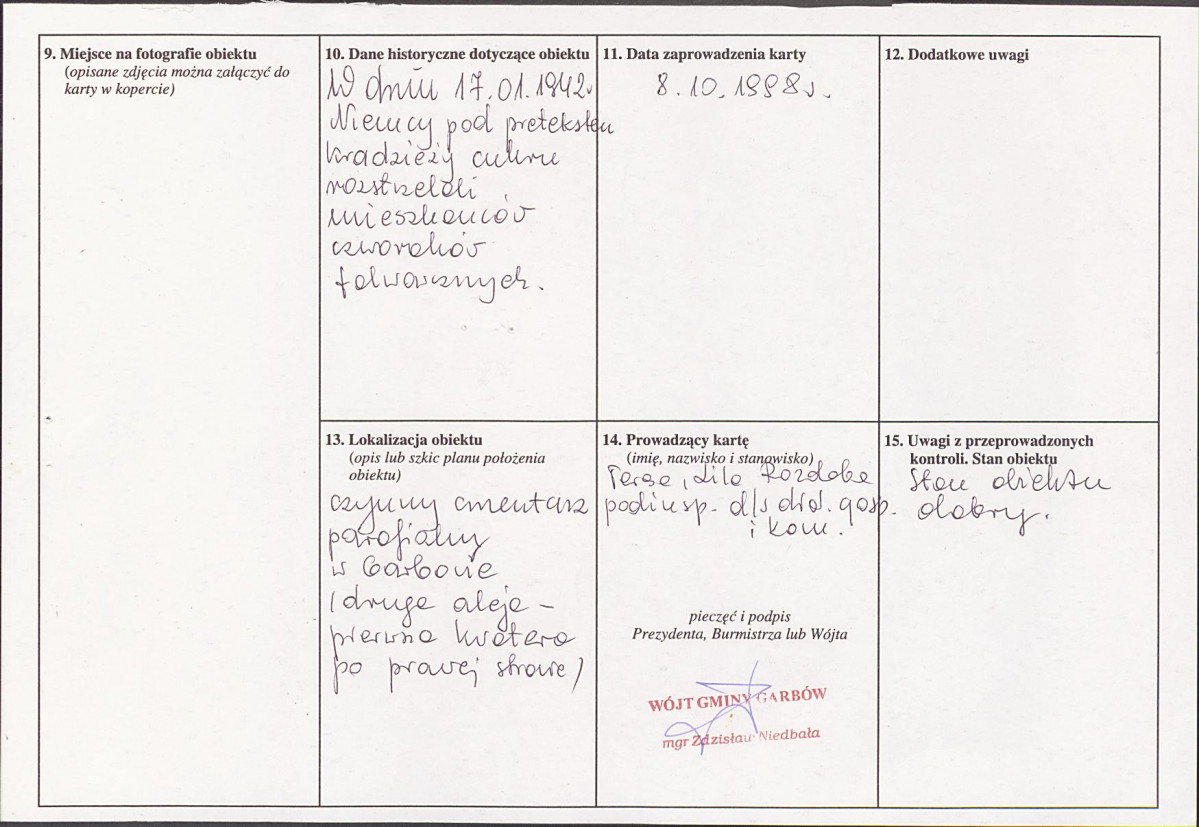 9. Miejsce na fotografie obiektu
(opisane zdjęcia można załączyć do
karty w kopercie)
10. Dane historyczne dotyczące obiektu
W dniu 17.01.1942r
Niemcy pod pretekstem
kradzieży cukru
rozstrzelali
mieszkańców
czworaków
folwarcznych.
11. Data zaprowadzenia karty
8.10.1998r.
12. Dodatkowe uwagi
13. Lokalizacja obiektu
(opis lub szkic planu położenia
obiektu)
czynny cmentarz
parafialny
w Garbowie
(druga aleja –
pierwsza kwatera
po prawej stronie)
14. Prowadzący kartę
(imię, nazwisko i stanowisko)
podinsp. d/s drd. gosp.
i kom.
pieczęć i podpis
Prezydenta, Burmistrza lub Wójta
WÓJT GMINY GARBÓW
mgr Zdzisław Niedbała
15. Uwagi z przeprowadzonych
kontroli. Stan obiektu
Stan obiektu
dobry.